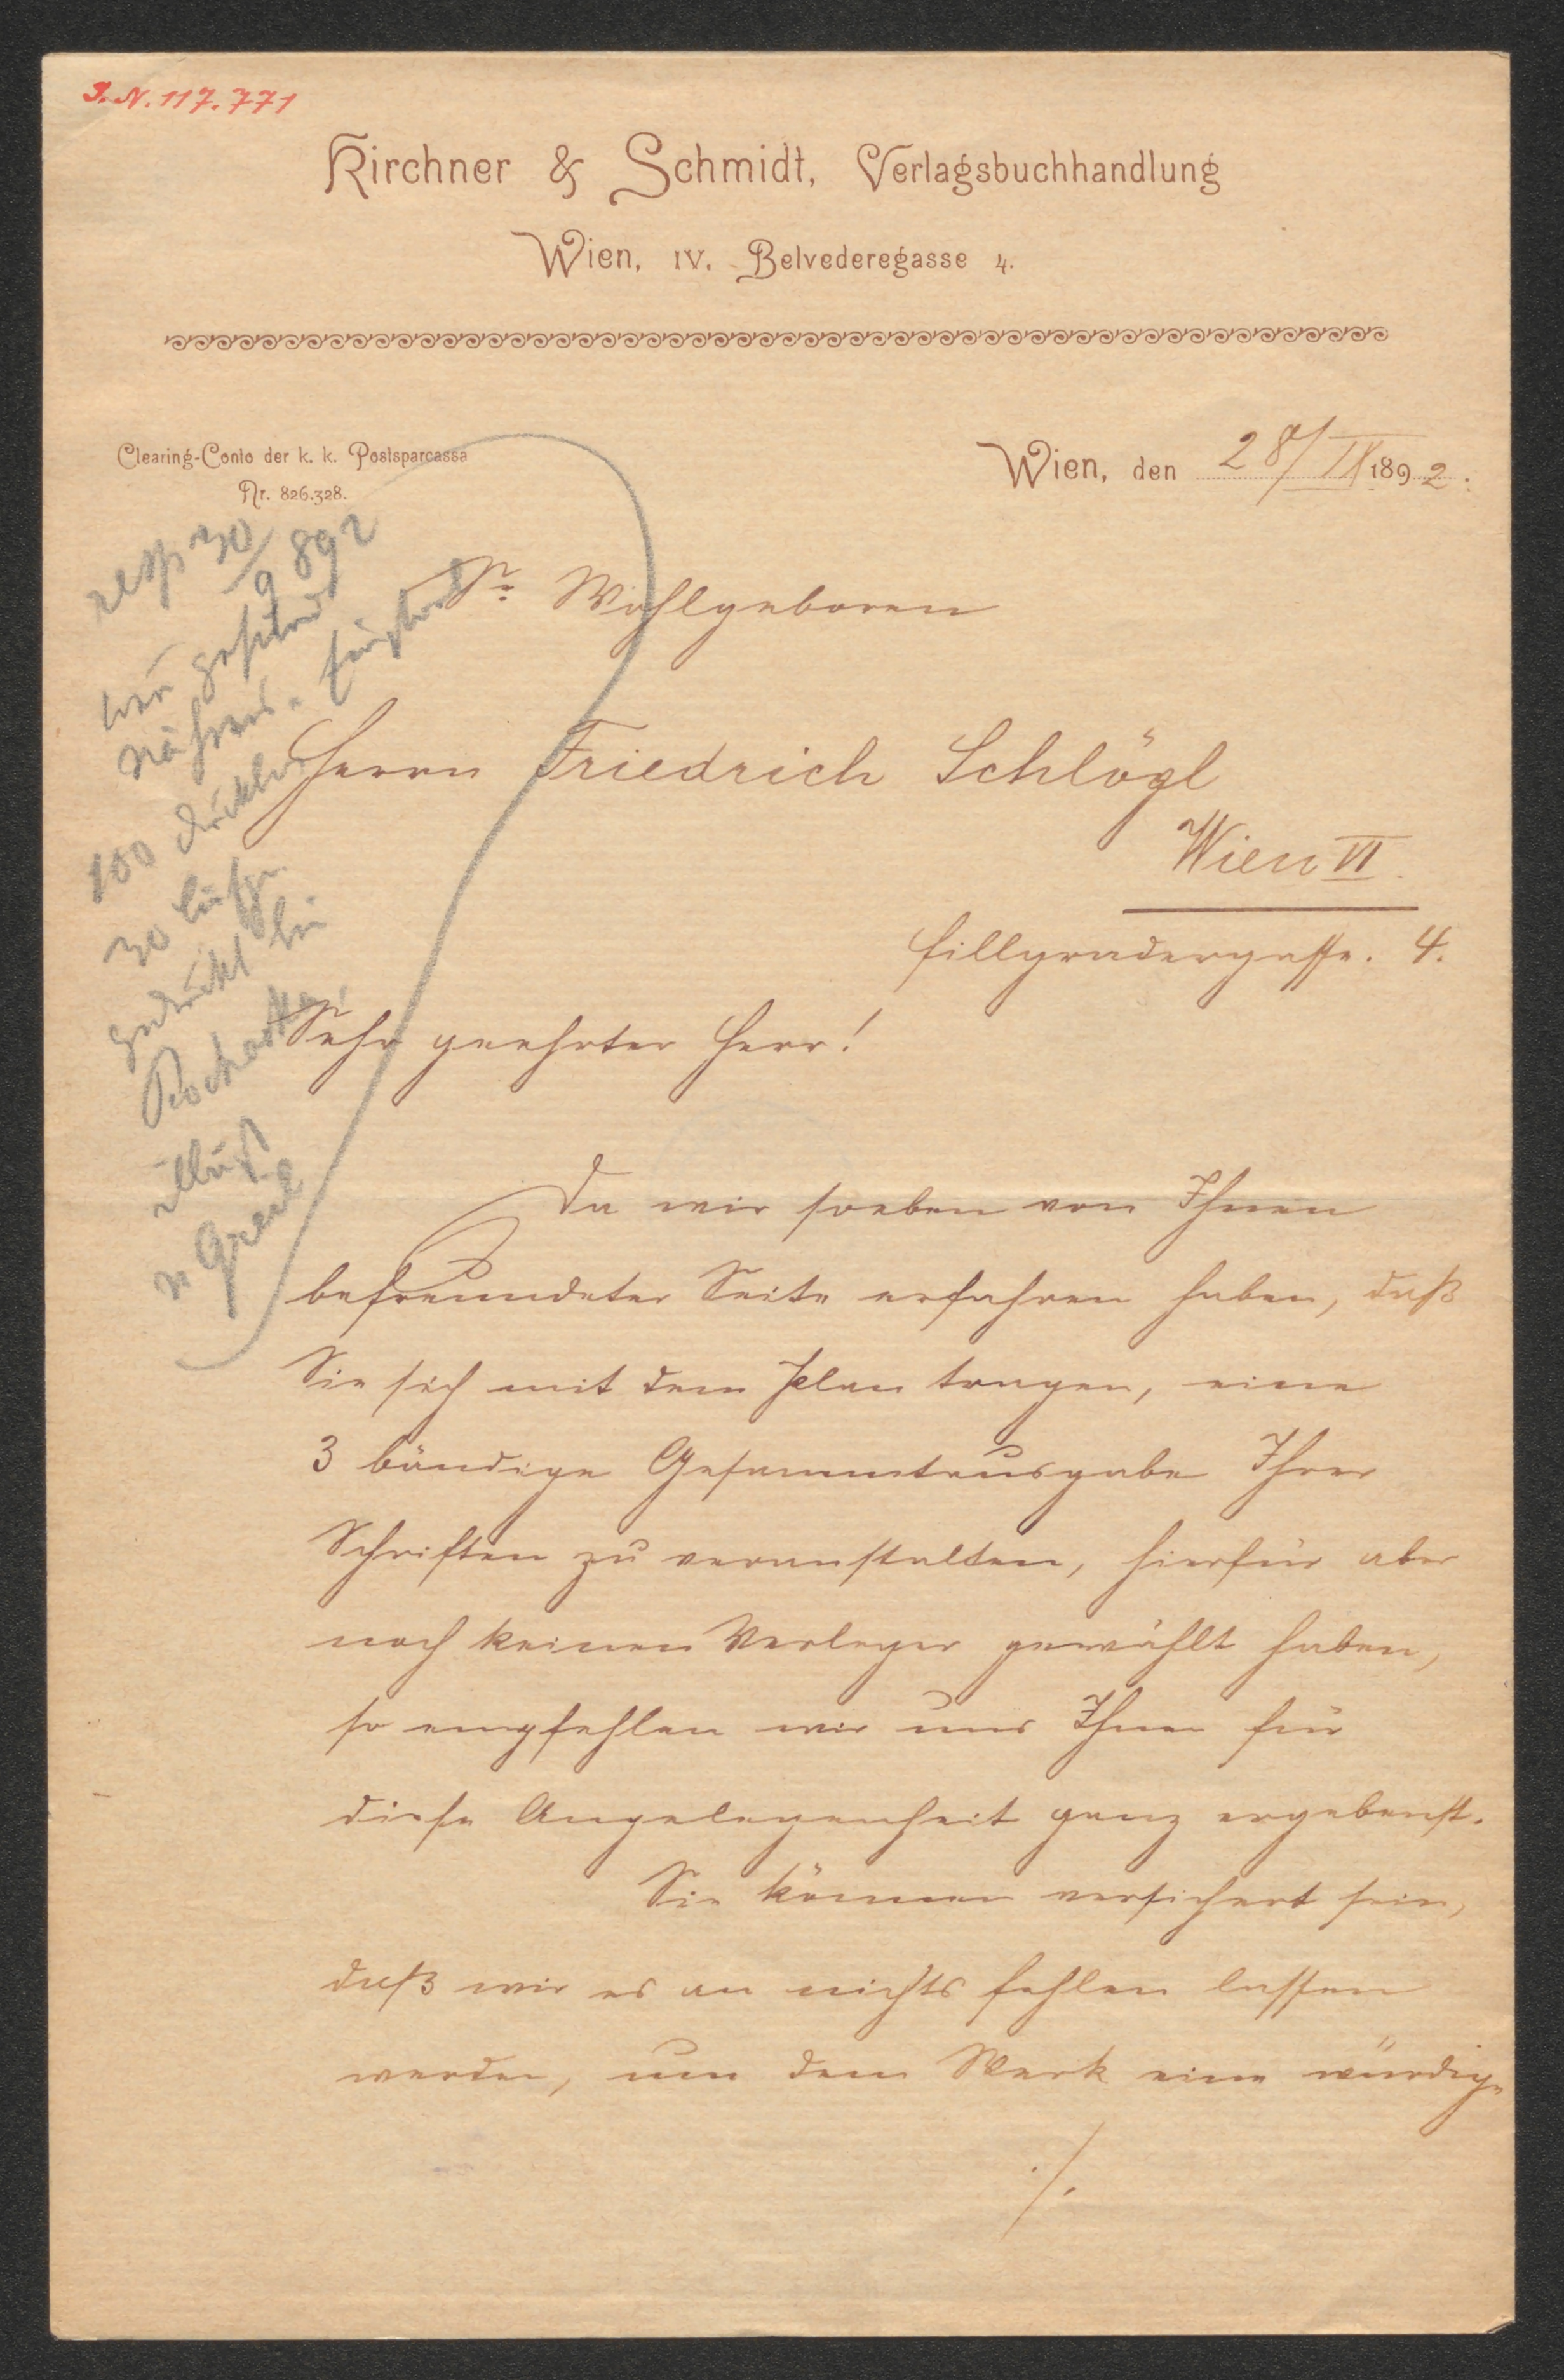 I. N. 117.771
Kirchner & Schmidt, Verlagsbuchhandlung
Wien, IV. Belvederegasse 4.
Clearing-Conto der k. k. Postsparcassa
Nr. 826.328.
Wien, den 28/IX 1892.
resp 30/9 892
100
30
gedruckt bei
illust
v Greil
Sr. Wohlgeboren
Herrn Friedrich Schlögl
Wien VI.
Fillgradergasse. 4.
Sehr geehrter Herr!
Da wir soeben von Ihnen
befreundeter Seite erfahren haben, daß
Sie sich mit dem Plan tragen, eine
3 bändige Gesammtausgabe Ihrer
Schriften zu veranstalten, hierfür aber
noch keinen Verleger gewählt haben,
so empfehlen wir uns Ihnen für
diese Angelegenheit ganz ergebenst.
Sie können versichert sein,
daß wir es an nichts fehlen lassen
werden, um dem Werk eine würdige
./.